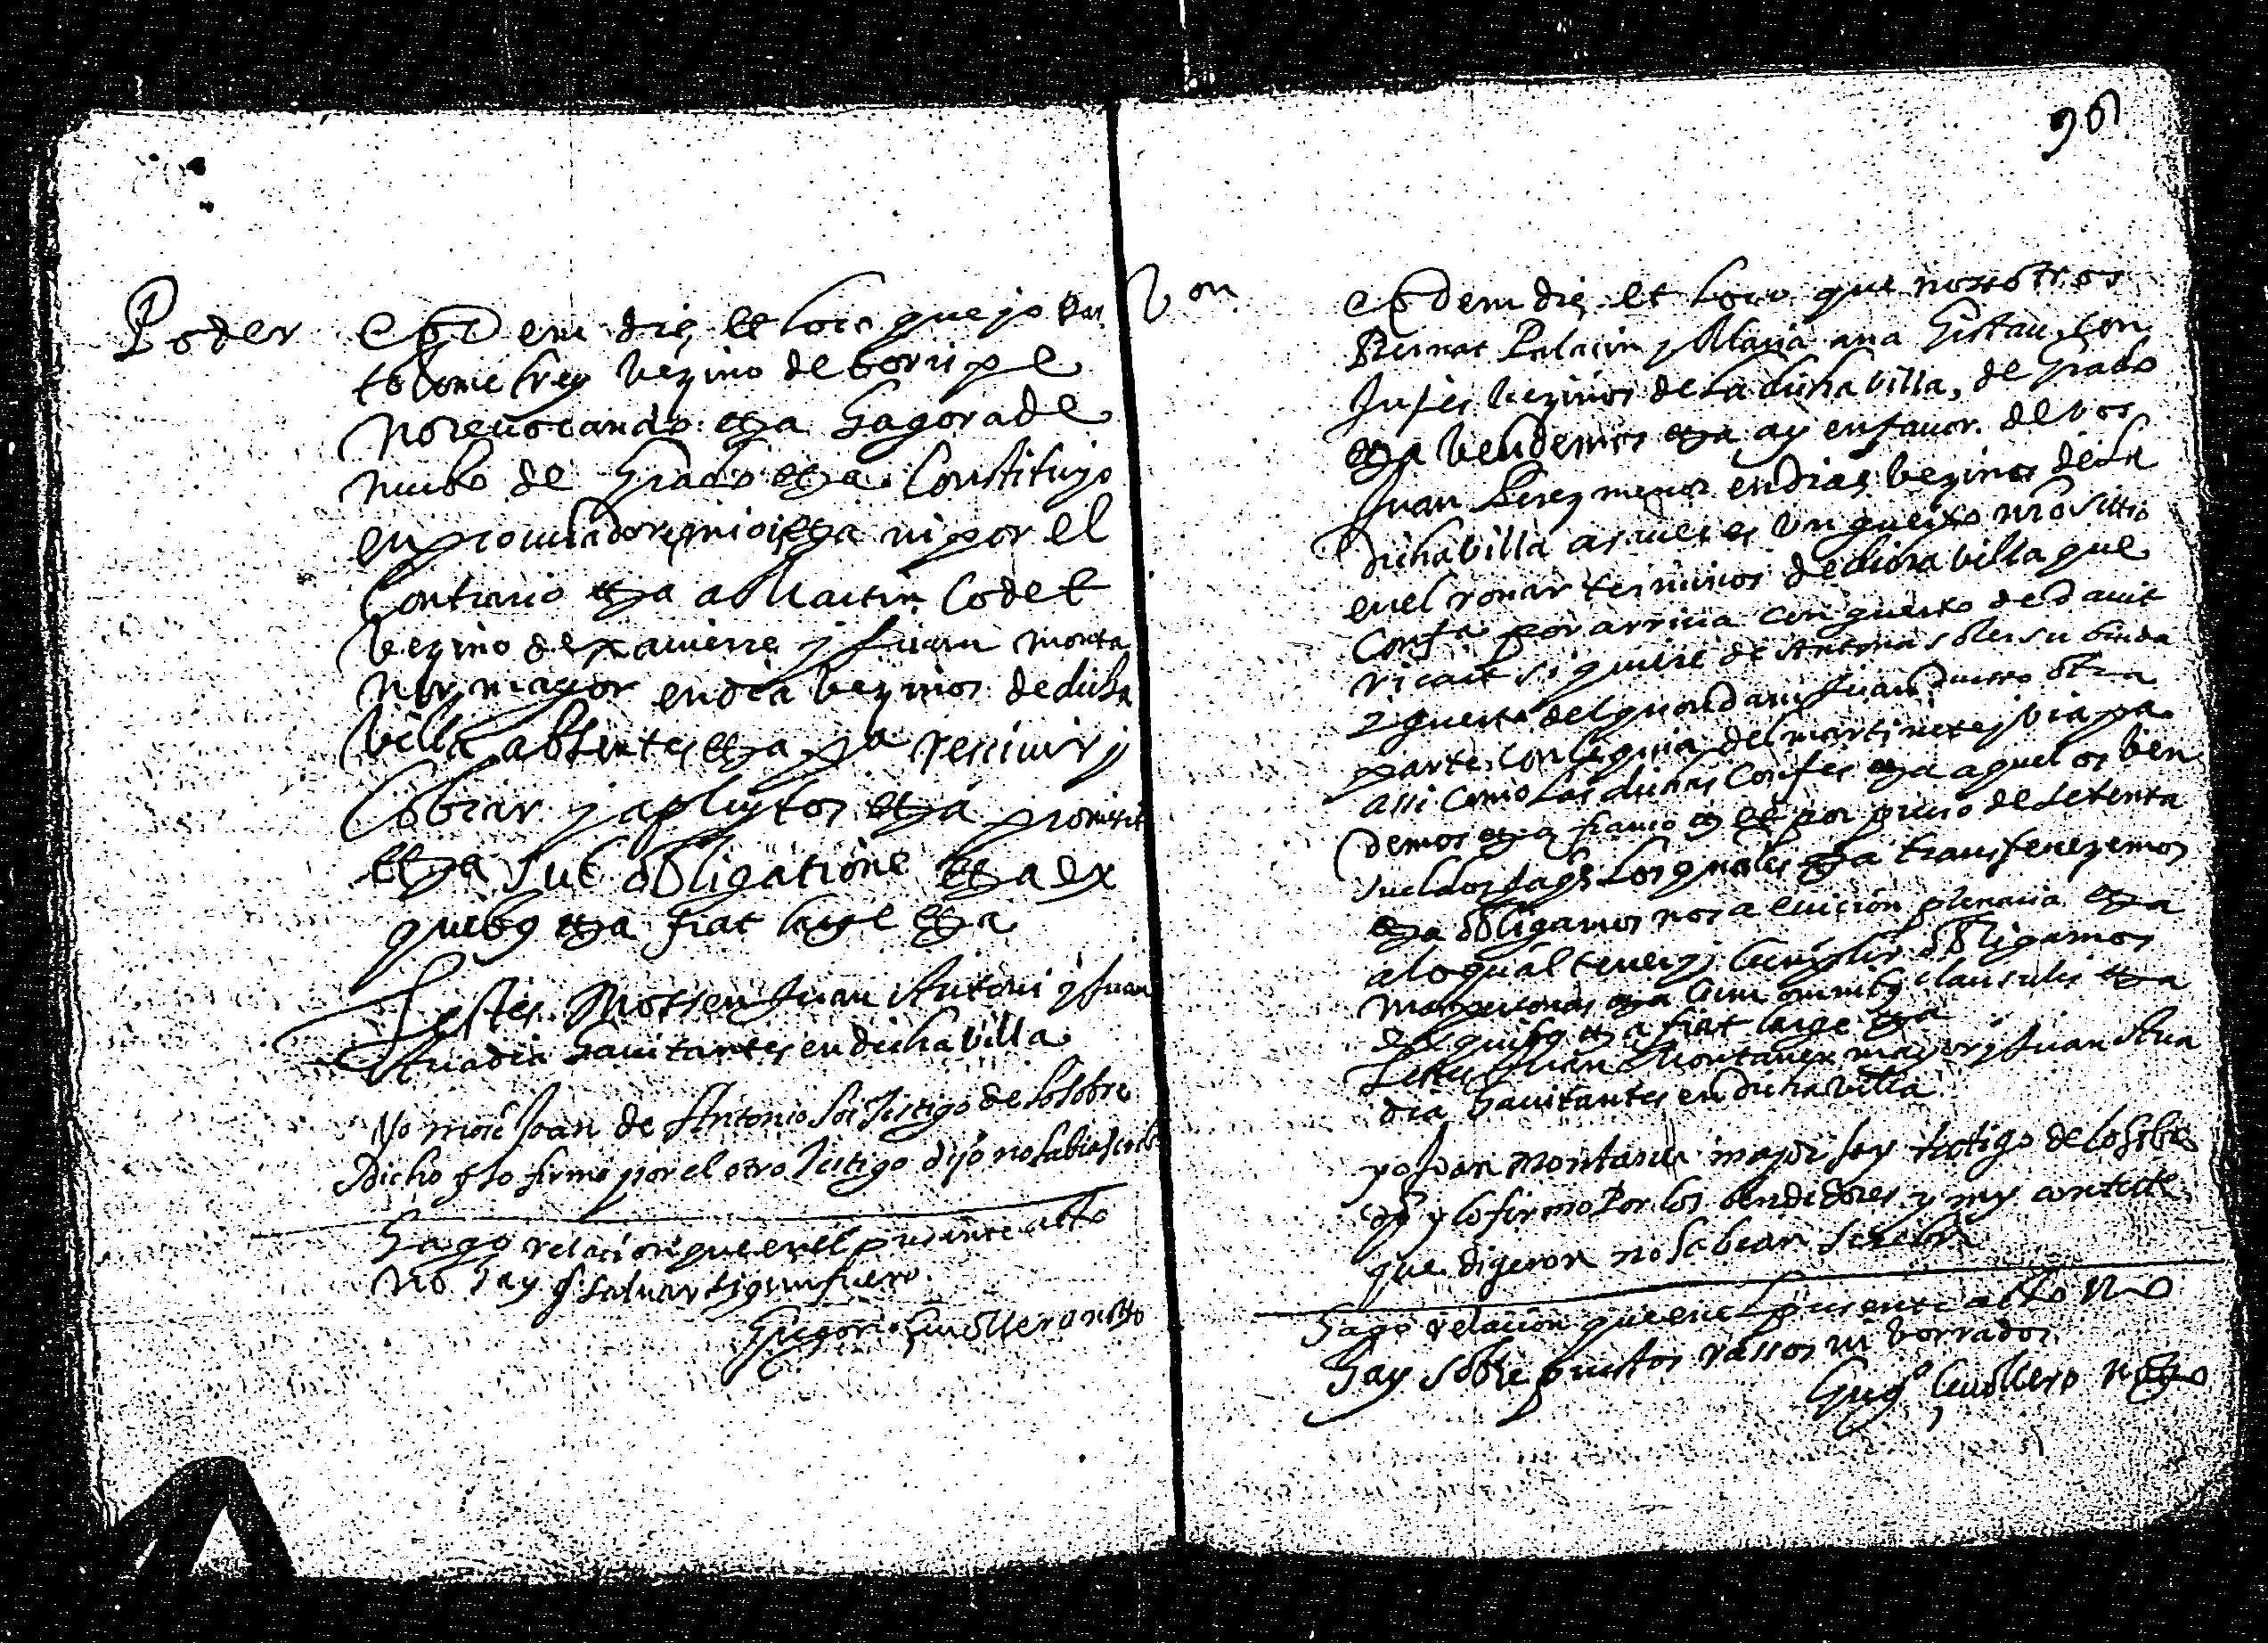 Poder
eod em die et loco que yo Bar
tolome frey vezino de borispe
no reuocando etza Hagora de
nuibo de Grado etza Constituyo
en procuradores mios etza ni por el
Contrario etza a Martin Codet
vezino de xauierre y Juan monta
ner mayor en dia vezinos de dicha
villa absentes etza pa reciuir y
Cobrar y a pleytos etza promisit
etza sub obligatione etza ex
quibus etza fiat large etza
Testes Mossen Juan Antoni y Juan
Auadia hauitantes en dicha villa
Yo mose Joan de Antonio soi Testigo de lo sobre
Dicho y lo firmo por el otro Testigo dijo no sabia scribir
Hago relacion que en el presente acto
no Hay q saluar sigun fuero
Gregorio Guollero notto
96
Von
eodem die et loco que nosotros
Bernat Palacin y Maria ana Gistau, con
juges vezinos de la dicha villa, de Grado
etza vendemos etza ay en fauor de vos
Juan Perez menor en dias vezino de la
dicha villa asaues es vn guerto nro sittio
en el ronar terminos de dicha villa que
confa por arriua con guerto de Dauit
ricart siquiere de Antona soler su biuda
y guerto del quondam Juan otra
parte con cequia del martinete y via pa
assi como las dichas confes etza aquel os ven
demos etza franco etza por precio de setenta
sueldos jaqs los quales etza transferezemos
etza obligamos nos a euicion plenaria etza
a lo qual tener y cumplir obligamos
nras personas etza cum omnibus clausulis etza
ex quibus etza fiat large etza
Testes Juan Montaner mayor y Juan Aua
dia hauitantes en dicha villa
yo Joan Montaner mayor soy testigo de lo sobre
dho y lo firmo Por los bendedores y my conteste
que digeron no sabian screbir
Hago relacion que en el presente acto no
Hay sobre puestos rassos ni borrados
Grego Guollero notto